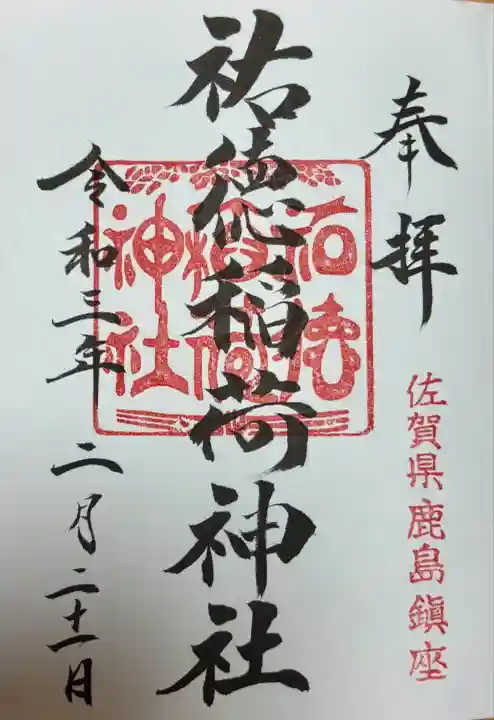 奉拝
佐賀県鹿島鎮座
祐徳稲荷神社
祐徳
稲荷
神社
令和三年 二月二十一日